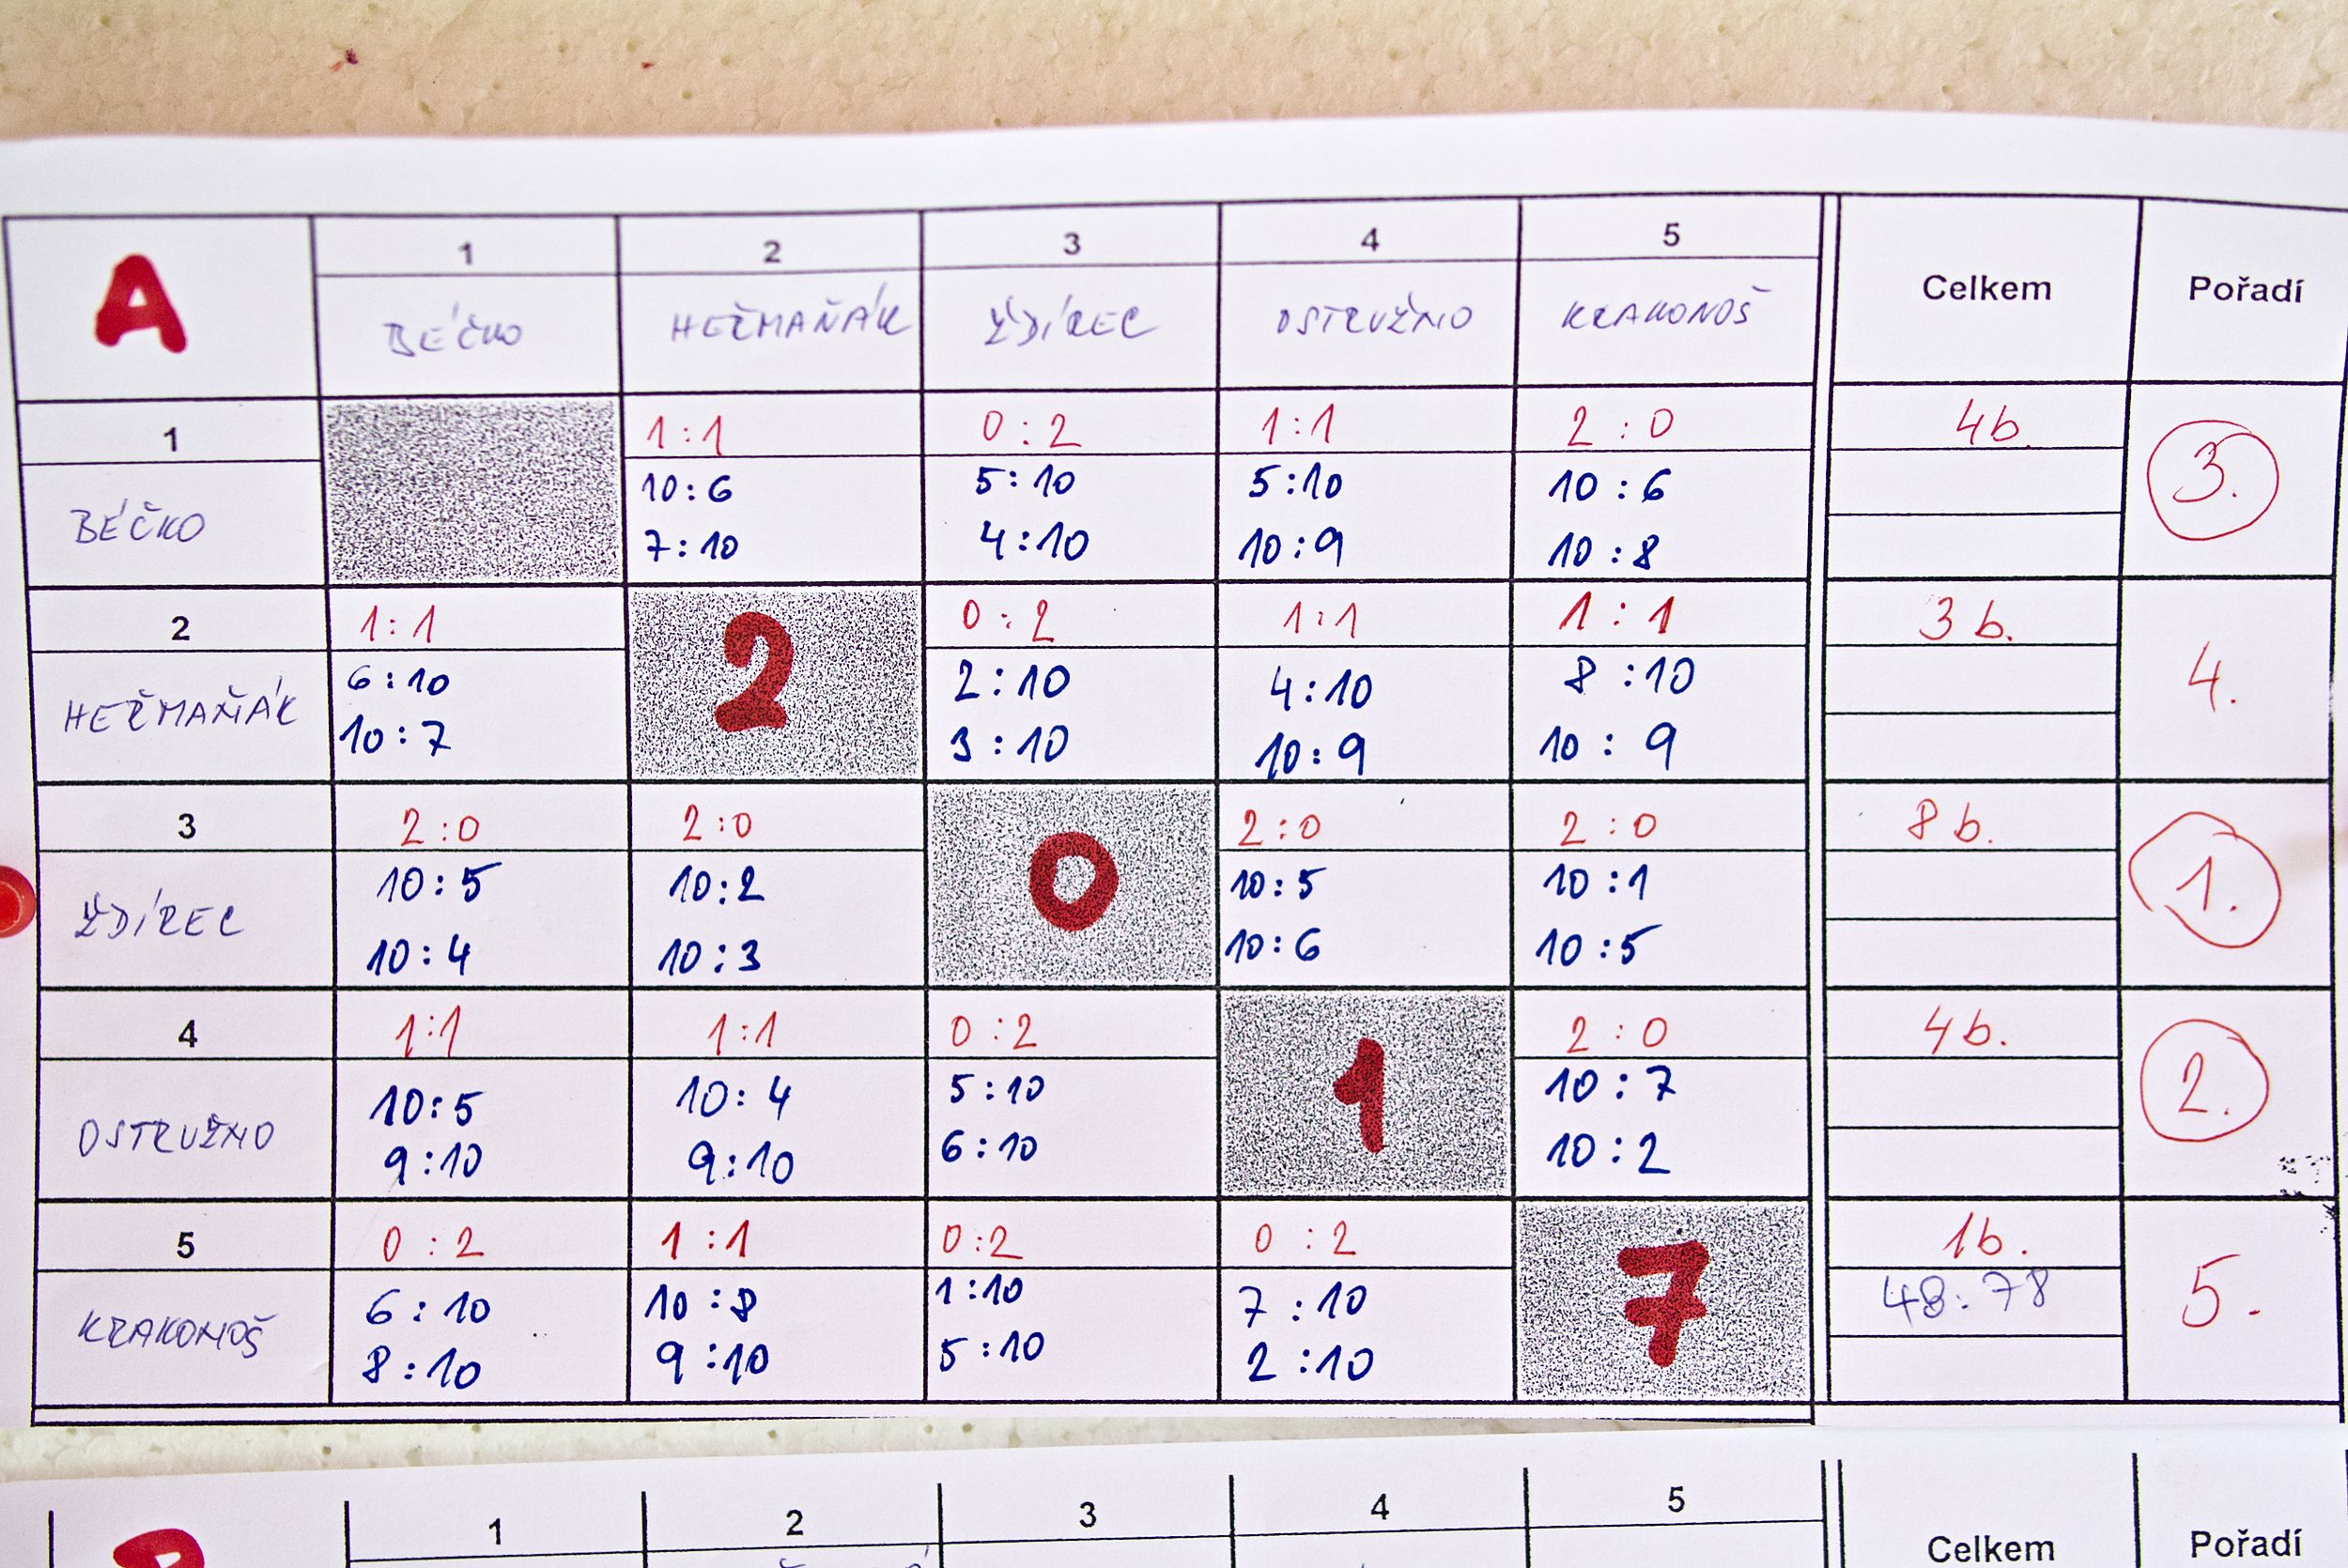 A
1 2 3 4 5
Celkem Pořadí
BÉČKO HEŘMAŇÁK ŽDÍREC OSTRUŽNO KRAKONOŠ
1 1:1 0:2 1:1 2:0 4b.
BÉČKO 10:6 5:10 5:10 10:6 3.
7:10 4:10 10:9 10:8
2 1:1 2 0:2 1:1 1:1 3b.
HEŘMAŇÁK 6:10 2:10 4:10 8:10 4.
10:7 3:10 10:9 10:9
3 2:0 2:0 0 2:0 2:0 8b.
ŽDÍREC 10:5 10:2 10:5 10:1 1.
10:4 10:3 10:6 10:5
4 1:1 1:1 0:2 1 2:0 4b.
OSTRUŽNO 10:5 10:4 5:10 10:7 2.
9:10 9:10 6:10 10:2
5 0:2 1:1 0:2 0:2 7 1b.
KRAKONOŠ 6:10 10:8 1:10 7:10 48:78 5.
8:10 9:10 5:10 2:10
1 2 3 4 5
Celkem Pořadí